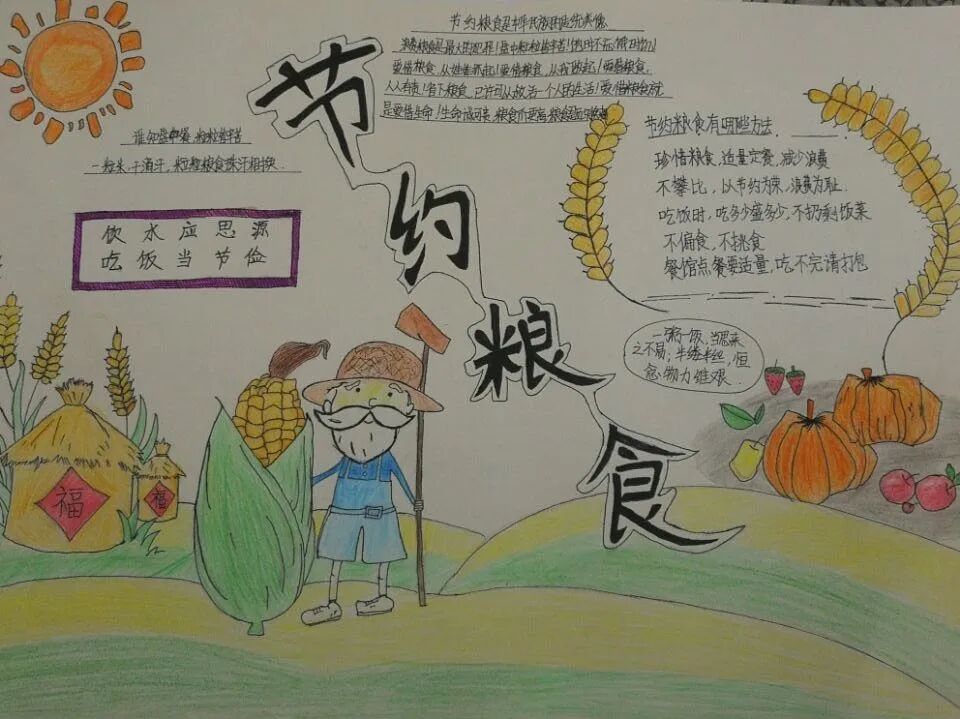 节约粮食是中华民族的传统美德
浪费粮食是最大的犯罪!盘中粒粒皆辛苦!
爱惜粮食,从娃娃抓起!爱惜粮食,从我做起!爱惜粮食,
人人有责!省下粮食,也许可以救活一个人的生活!爱惜粮食就
是爱惜生命!生命诚可贵,粮食
节约粮食
谁知盘中餐,粒粒皆辛苦
一粒米,千滴汗,粒粒粮食珠汗相换.
饮水应思源
吃饭当节俭
节约粮食有哪些方法.
珍惜粮食,适量定餐,减少浪费
不攀比,以节约为荣,浪费为耻.
吃饭时,吃多少盛多少,不扔剩饭菜
不偏食,不挑食
餐馆点餐要适量,吃不完请打包
一粥一饭,当思来
之不易;半缕半丝,恒
念物力维艰.
福
福